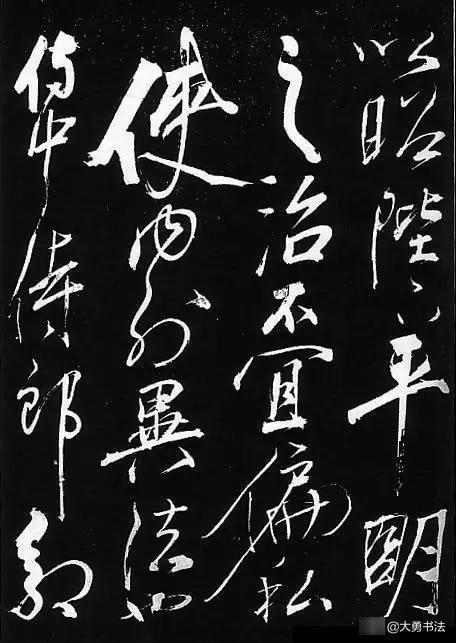 以昭陛下平明
之治不宜偏私
使内外異法也
侍中侍郎郭
@大勇书法